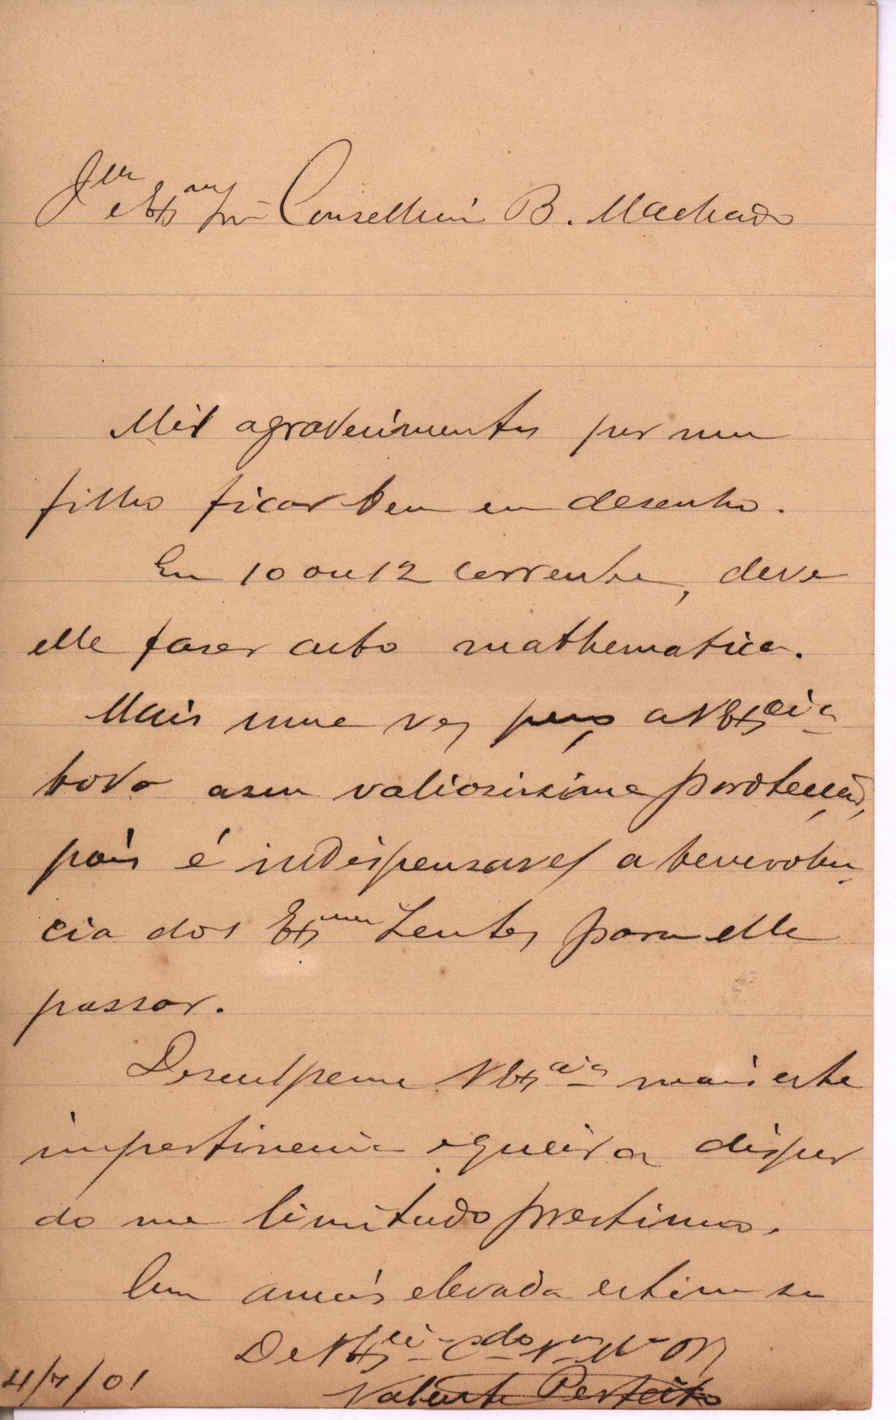 Ill.mo e Ex.mo Snr Conselheiro B. Machado
Mil agradecimentos por meu
filho ficar bem em desenho.
Em 10 ou 12 corrente, deve
elle faser acto mathematica.
Mais uma vez peço a V Ex.cia
toda a sua valiosissima protecção,
pois é indispensavel a benevolen-
cia dos Ex.mos Lentes para elle
passar.
Desculpeme V Ex.cia mais esta
impertinencia e queira dispor
do meu limitado prestimo.
Com a mais elevada estima sou
De V Ex.cia
4/7/01
Valente Perfeito